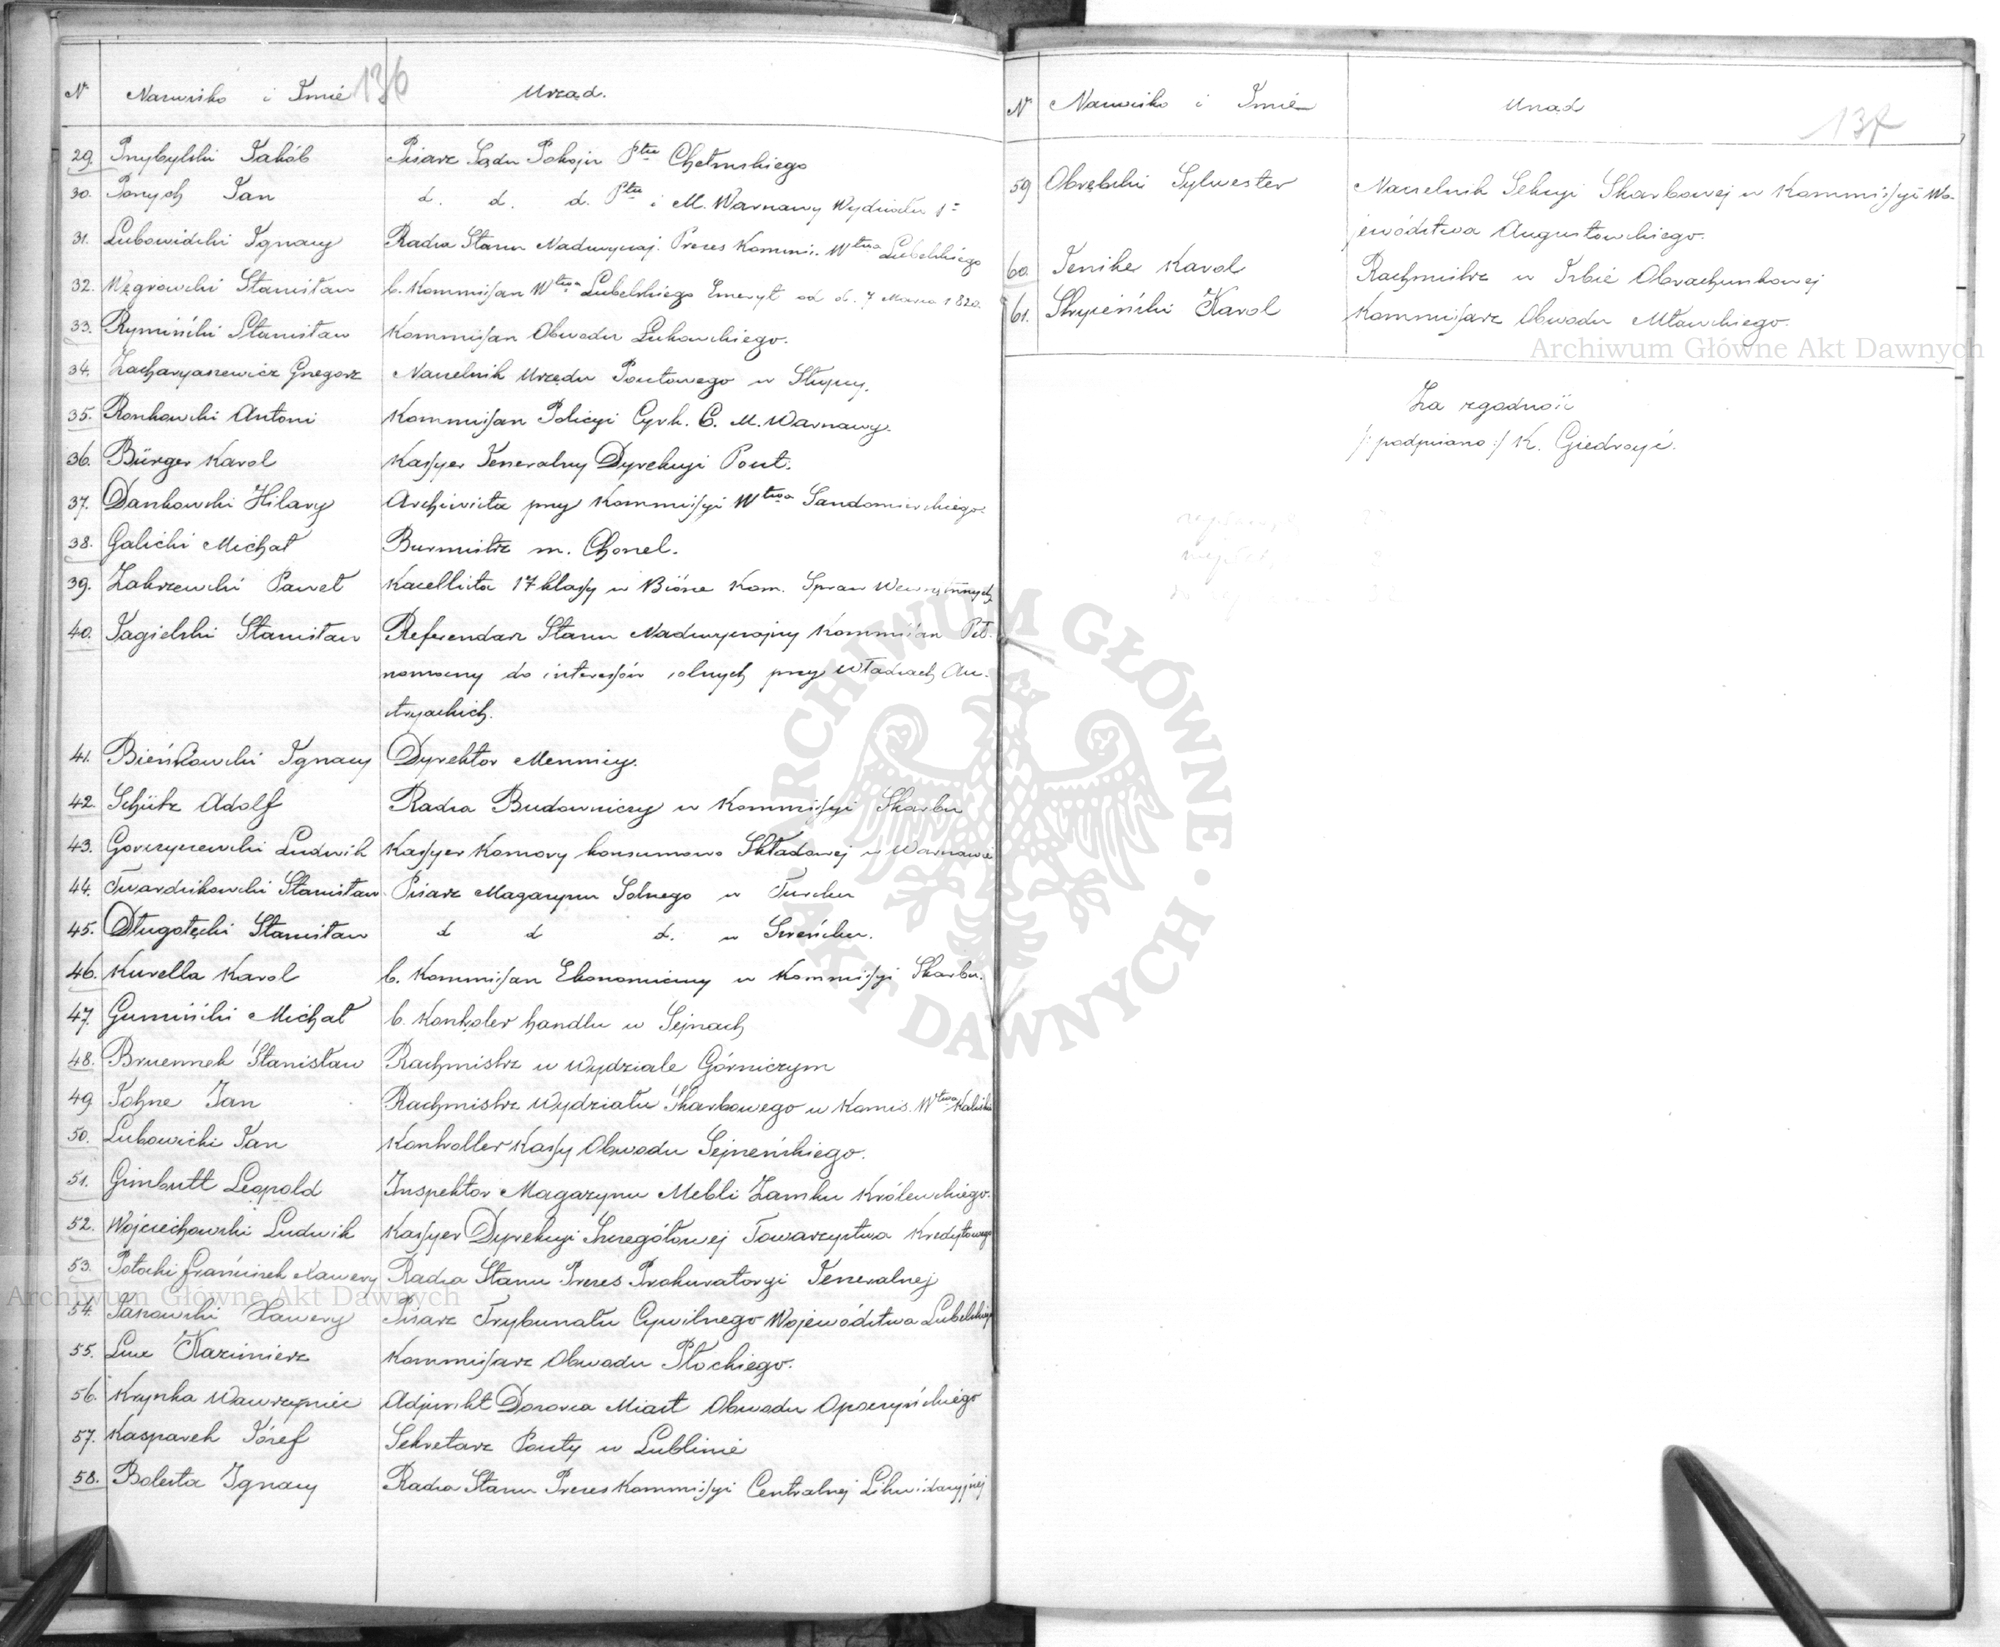 136
N Nazwisko i Imie Urząd.
29. Przybylski Jakób Pisarz Sądu Pokoju Ptu Chełmskiego
30. Jan d. d. d. Ptu i M. Warszawy Wydziału 1
31. Lubowidzki Ignacy Radca Stanu Nadzwyczaj. Prezes Kommis. Wtwa Lubelskiego
32. Węgrowski Stanisław b. Kommissarz Wtwa Lubelskiego Emeryt od d. 7 Marca 1820.
33. Rymiński Stanisław Kommissarz Obwodu Łukowskiego.
34. Zacharyasewicz Grzegorz Naczelnik Urzędu Pocztowego w Słupcy.
35. Ronkowski Antoni Kommissarz Policyi Cyrk. 6. M. Warszawy.
36. Bürger Karol Kassyer Jeneralny Dyrekcyi Poczt.
37. Dankowski Hilary Archiwista przy Kommissyi Wtwa Sandomierskiego
38. Galicki Michał Burmistrz m. Chorzel.
39. Zakrzewski Paweł Kancellista 17 klassy w Biórze Kom. Spraw Wewnętrznych
40. Jagielski Stanisław Referendarz Stanu Nadzwyczajny Kommissarz Peł-
nomocny do interessów solnych przy Władzach Au-
stryackich.
41. Bieńkowski Ignacy Dyrektor Mennicy.
42. Schütz Adolf Radca Budowniczy w Kommissyi Skarbu
43. Gorczyczewski Ludwik Kassyer Komory konsumowo Składowej w Warszawie
44. Twardzikowski Stanisław Pisarz Magazynu Solnego w Turcku
45. Długołęcki Stanisław d d d. w Szreńsku.
46. Kurella Karol b. Kommissarz Ekonomiczny w Kommissyi Skarbu.
47. Gumiński Michał b. Kontroler handlu w Sejnach
48. Bruennek Stanisław Rachmistrz w Wydziale Górniczym
49. Johne Jan Rachmistrz Wydziału Skarbowego w Komis. Wtwa Kalisk.
50. Lubowicki Jan Kontroller Kassy Obwodu Sejneńskiego.
51. Gimbutt Leopold Inspektor Magazynu Mebli Zamku Królewskiego.
52. Wojciechowski Ludwik Kassyer Dyrekcyi Szczegółowej Towarzystwa Kredytowego
53. Potocki Franciszek Xawery Radca Stanu Prezes Prokuratoryi Jeneralnej
54. Janowski Xawery Pisarz Trybunału Cywilnego Województwa Lubelskiego
55. Lux Kazimierz Kommissarz Obwodu Płockiego.
56. Krynka Wawrzyniec Adjunkt Dozorca Miast Obwodu Opoczyńskiego
57. Kasparek Józef Sekretarz Poczty w Lublinie
58. Bolesta Ignacy Radca Stanu Prezes Kommissyi Centralnej Likwidacyjnej
Archiwum Główne Akt Dawnych
137
N Nazwisko i Imie Urząd
59 Obrębski Sylwester Naczelnik Sekcyi Skarbowej w Kommissyi Wo-
jewództwa Augustowskiego.
60. Jenike Karol Rachmistrz w Izbie Obrachunkowej
61. Skrypiński Karol Kommissarz Obwodu Mławskiego.
Archiwum Główne Akt Dawnych
Za zgodność
/: podpisano :/ K. Giedroyć.
ARCHIWUM GŁÓWNE AKT DAWNYCH